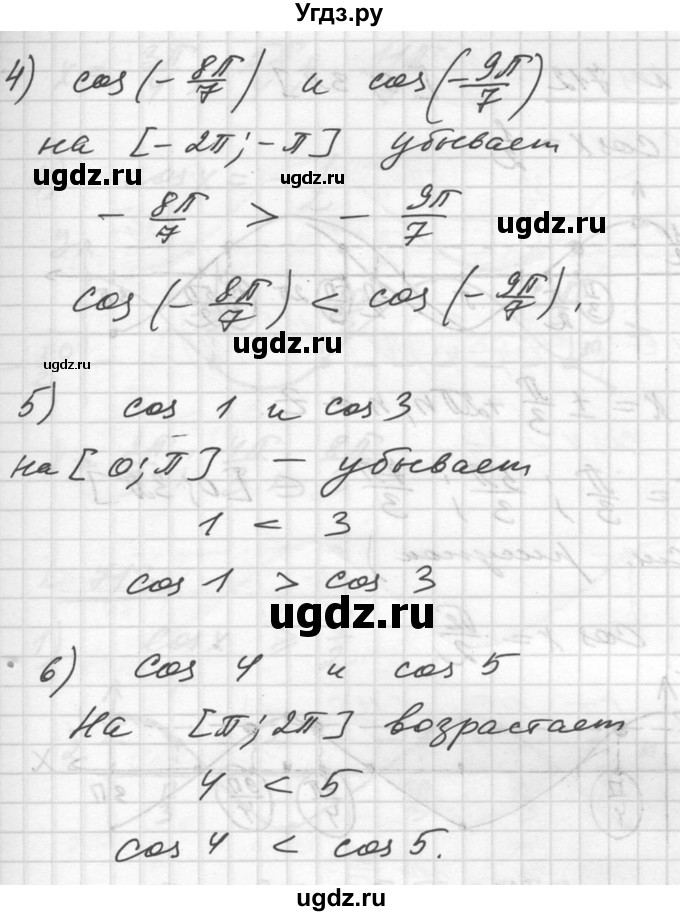 Угдз.ру
4) cos(-8π/7) и cos(-9π/7)
на [-2π;-π] убывает
ugdz.ru
ugdz.ru
-8π/7 > -9π/7
ugdz.ru
cos(-8π/7) < cos(-9π/7).
ugdz.ru
ugdz.ru
5) cos 1 и cos 3
на [0;π] — убывает
1 < 3
cos 1 > cos 3
ugdz.ru
6) cos 4 и cos 5
На [π;2π] возрастает
4 < 5
cos 4 < cos 5.
ugdz.ru